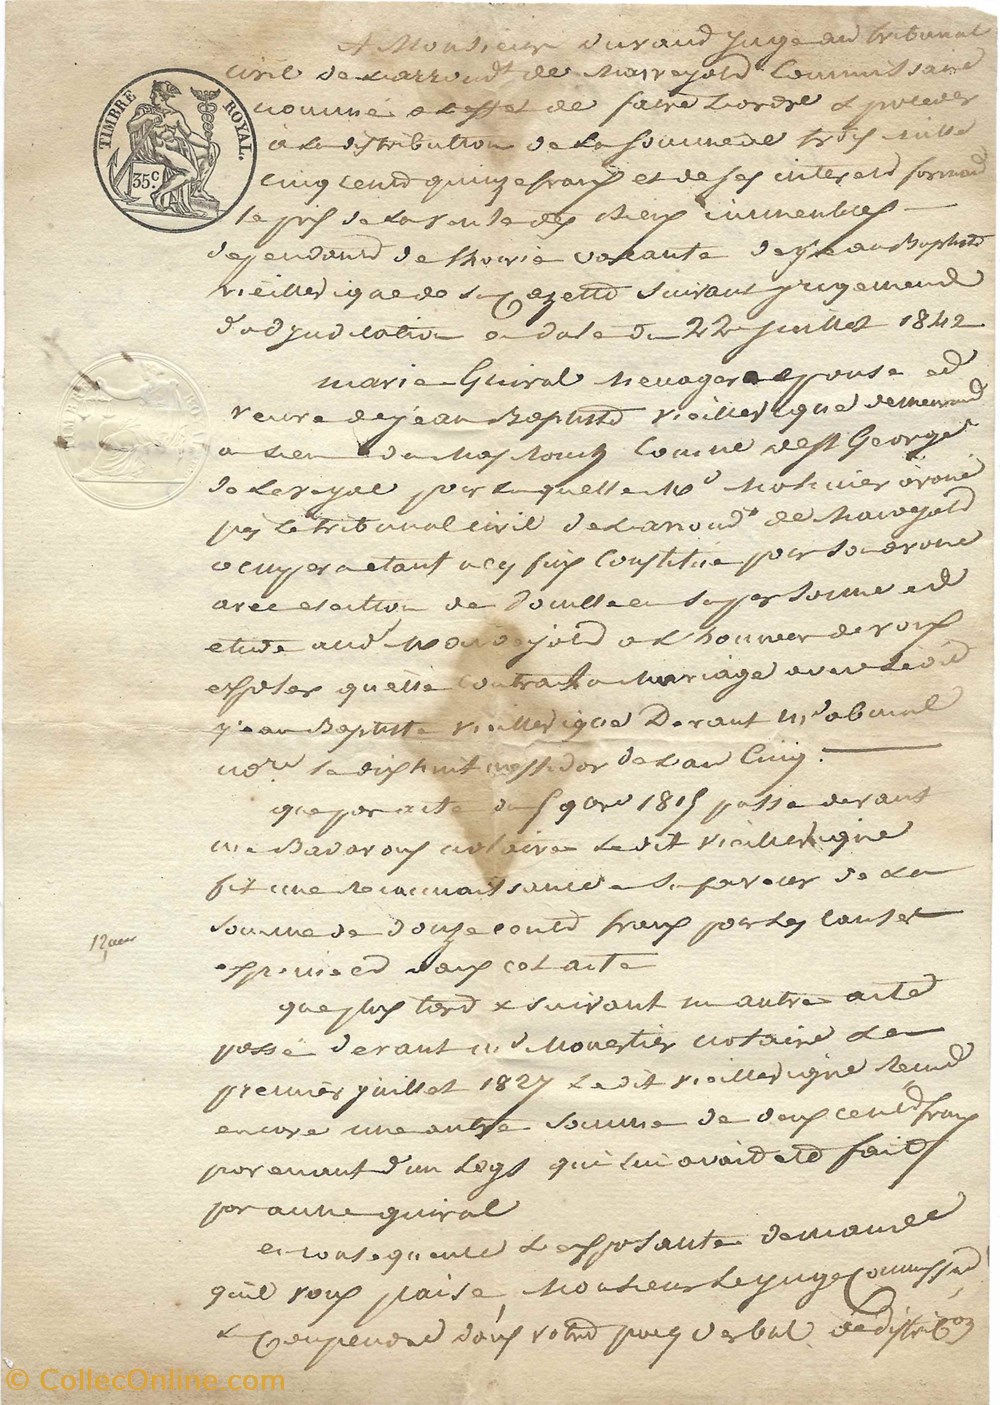 A Monsieur Durand juge au tribunal
civil de l'arrond.t de Marvejols Commissaire
nommé a l'effet de faire l'ordre & proceder
a la distribution de la somme de trois mille
TIMBRE ROYAL.
35c
cinq cents quinze francs et de ses interets formant
le prix de la vente des biens immeubles
dependants de l'hoirie vacante de jean Baptiste
vieilledigue de su suivant jugement
d'adjudication en date du 22 juillet 1842
marie Guiral menagere epouse et
veuve de jean Baptiste vieilledigue demeurant
au lieu du mas commune de St George
de Levejac pour laquelle Me avoué
pres le tribunal civil de l'arrond.t de Marvejols
occupera etant a ces fins constitué pour son avoué
avec election de domicile en sa personne et
etude aud.t marvejols a l'honneur de vous
exposer qu'elle contracta mariage avec ledit
jean Baptiste vieilledigue Devant Me
no.re le dix huit messidor de l'an Cinq.
que par acte du 5 9bre 1815 passé devant
Me notaire ledit vieilledigue
fit une reconnaissance en sa faveur de la
somme de douze cents francs pour les causes
exprimées dans cet acte
que plus tard & suivant un autre acte
passé devant Me Monestier notaire le
premier juillet 1827 ledit vieilledigne reçut
encore une autre somme de deux cents francs
provenant d'un legs qui lui avait eté fait
par anne guiral
en consequence l'exposante demande
qu'il vous plaise, Monsieur le juge Commissaire
& comprendre dans votre procès verbal de distribion
© CollecOnline.com